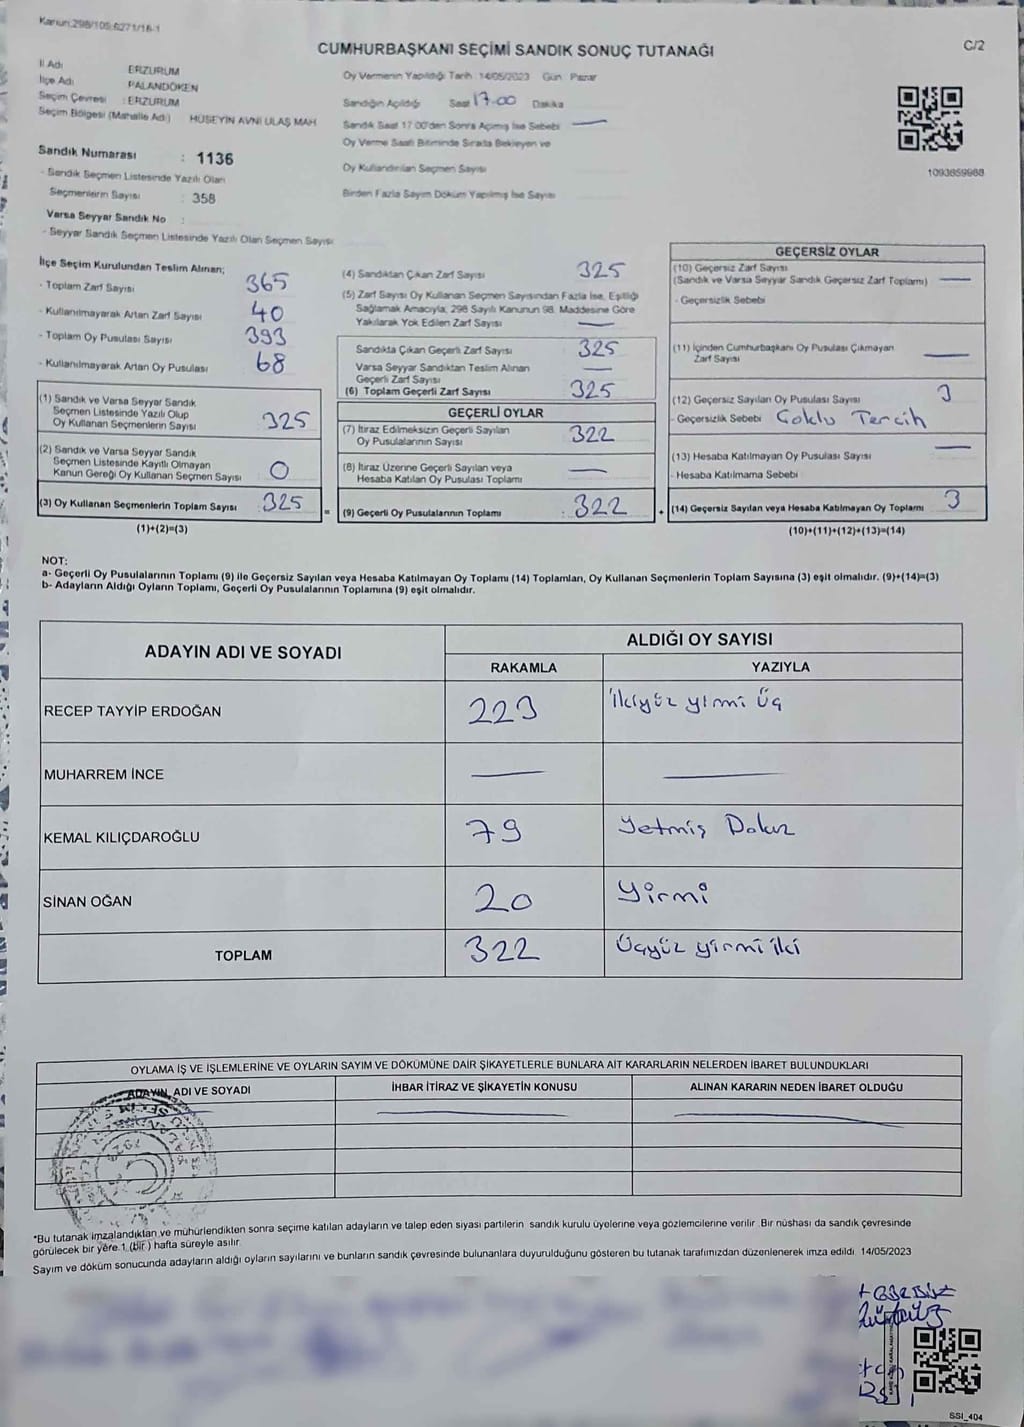 Kanun:298/105;6271/16-1
C/2
CUMHURBAŞKANI SEÇİMİ SANDIK SONUÇ TUTANAĞI
İl Adı : ERZURUM
İlçe Adı : PALANDÖKEN
Seçim Çevresi : ERZURUM
Seçim Bölgesi (Mahalle Adı) : HÜSEYİN AVNİ ULAŞ MAH
Sandık Numarası : 1136
- Sandık Seçmen Listesinde Yazılı Olan
Seçmenlerin Sayısı : 358
Varsa Seyyar Sandık No :
- Seyyar Sandık Seçmen Listesinde Yazılı Olan Seçmen Sayısı
Oy Vermenin Yapıldığı Tarih : 14/05/2023 Gün : Pazar
Sandığın Açıldığı Saat 17.00 Dakika
Sandık Saat 17:00'den Sonra Açılmış İse Sebebi —
Oy Verme Saati Bitiminde Sırada Bekleyen ve
Oy Kullandırılan Seçmen Sayısı
Birden Fazla Sayım Döküm Yapılmış İse Sayısı
1093859988
İlçe Seçim Kurulundan Teslim Alınan;
- Toplam Zarf Sayısı 365
- Kullanılmayarak Artan Zarf Sayısı 40
- Toplam Oy Pusulası Sayısı 393
- Kullanılmayarak Artan Oy Pusulası 68
(1) Sandık ve Varsa Seyyar Sandık
Seçmen Listesinde Yazılı Olup
Oy Kullanan Seçmenlerin Sayısı 325
(2) Sandık ve Varsa Seyyar Sandık
Seçmen Listesinde Kayıtlı Olmayan
Kanun Gereği Oy Kullanan Seçmen Sayısı 0
(3) Oy Kullanan Seçmenlerin Toplam Sayısı : 325
(1)+(2)=(3)
(4) Sandıktan Çıkan Zarf Sayısı 325
(5) Zarf Sayısı Oy Kullanan Seçmen Sayısından Fazla İse, Eşitliği
Sağlamak Amacıyla, 298 Sayılı Kanunun 98. Maddesine Göre
Yakılarak Yok Edilen Zarf Sayısı —
Sandıkta Çıkan Geçerli Zarf Sayısı 325
Varsa Seyyar Sandıktan Teslim Alınan
Geçerli Zarf Sayısı —
(6) Toplam Geçerli Zarf Sayısı 325
GEÇERLİ OYLAR
(7) İtiraz Edilmeksizin Geçerli Sayılan
Oy Pusulalarının Sayısı 322
(8) İtiraz Üzerine Geçerli Sayılan veya
Hesaba Katılan Oy Pusulası Toplamı —
= (9) Geçerli Oy Pusulalarının Toplamı : 322
GEÇERSİZ OYLAR
(10) Geçersiz Zarf Sayısı
(Sandık ve Varsa Seyyar Sandık Geçersiz Zarf Toplamı) —
- Geçersizlik Sebebi
(11) İçinden Cumhurbaşkanı Oy Pusulası Çıkmayan
Zarf Sayısı —
(12) Geçersiz Sayılan Oy Pusulası Sayısı 3
- Geçersizlik Sebebi Çoklu Tercih
(13) Hesaba Katılmayan Oy Pusulası Sayısı —
- Hesaba Katılmama Sebebi
+ (14) Geçersiz Sayılan veya Hesaba Katılmayan Oy Toplamı 3
(10)+(11)+(12)+(13)=(14)
NOT:
a- Geçerli Oy Pusulalarının Toplamı (9) ile Geçersiz Sayılan veya Hesaba Katılmayan Oy Toplamı (14) Toplamları, Oy Kullanan Seçmenlerin Toplam Sayısına (3) eşit olmalıdır. (9)+(14)=(3)
b- Adayların Aldığı Oyların Toplamı, Geçerli Oy Pusulalarının Toplamına (9) eşit olmalıdır.
ADAYIN ADI VE SOYADI ALDIĞI OY SAYISI
RAKAMLA YAZIYLA
RECEP TAYYİP ERDOĞAN 223 İkiyüz yirmi Üç
MUHARREM İNCE — —
KEMAL KILIÇDAROĞLU 79 Yetmiş Dokuz
SİNAN OĞAN 20 Yirmi
TOPLAM 322 Üçyüz yirmi iki
OYLAMA İŞ VE İŞLEMLERİNE VE OYLARIN SAYIM VE DÖKÜMÜNE DAİR ŞİKAYETLERLE BUNLARA AİT KARARLARIN NELERDEN İBARET BULUNDUKLARI
ADAYIN ADI VE SOYADI İHBAR İTİRAZ VE ŞİKAYETİN KONUSU ALINAN KARARIN NEDEN İBARET OLDUĞU
*Bu tutanak imzalandıktan ve mühürlendikten sonra seçime katılan adayların ve talep eden siyasi partilerin sandık kurulu üyelerine veya gözlemcilerine verilir. Bir nüshası da sandık çevresinde
görülecek bir yere 1 (bir ) hafta süreyle asılır.
Sayım ve döküm sonucunda adayların aldığı oyların sayılarını ve bunların sandık çevresinde bulunanlara duyurulduğunu gösteren bu tutanak tarafımızdan düzenlenerek imza edildi. 14/05/2023
SSI_404